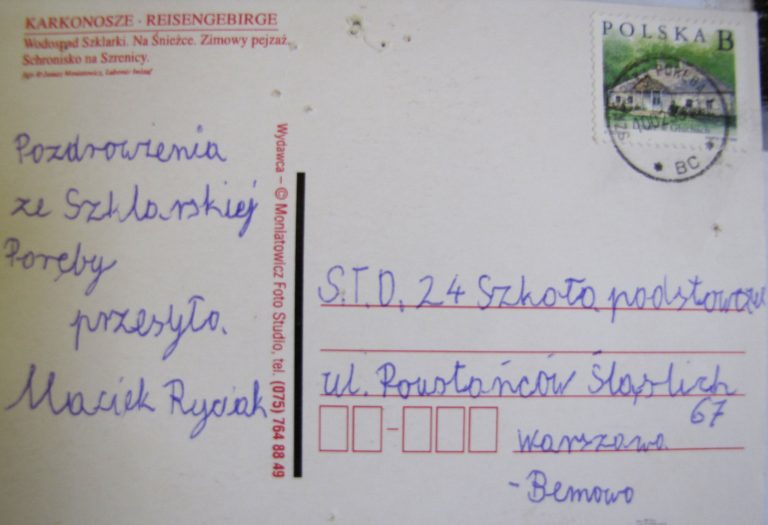 KARKONOSZE · REISENGEBIRGE
Wodospad Szklarki. Na Śnieżce. Zimowy pejzaż.
Schronisko na Szrenicy.
Pozdrowienia
ze Szklarskiej
Poręby
przesyła.
Maciek Ryciak
Wydawca – © Moniatowicz Foto Studio, tel. (075) 764 88 49
POLSKA B
PORĘBA
BC
S.T.D. 24 Szkoła podstawowa
ul. Powstańców Śląskich
67
Warszawa
-Bemowo